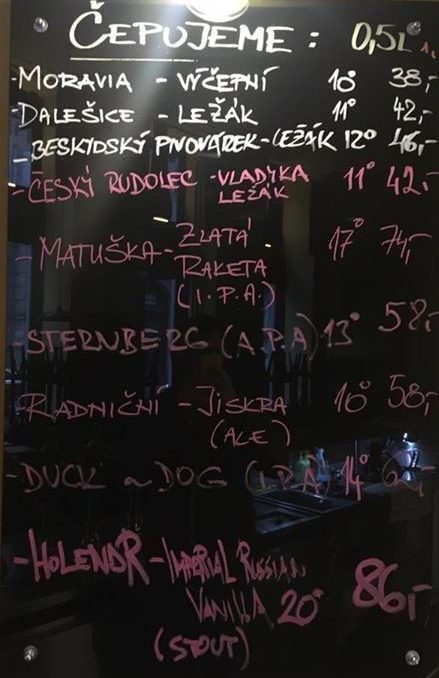 ČEPUJEME : 0,5L 1,
- MORAVIA - VÝČEPNÍ 10° 38,-
- DALEŠICE - LEŽÁK 11° 42,-
- BESKYDSKÝ PIVOVÁREK - LEŽÁK 12° 46,-
- ČESKÝ RUDOLEC - VLADYKA 11° 42,-
LEŽÁK
- MATUŠKA - ZLATÁ 17° 74,-
RAKETA
(I.P.A.)
- STERNBERG (A.P.A) 13° 58,-
- RADNIČNÍ - JISKRA 10° 58,-
(ALE)
- DUCK n DOG (I.P.A) 14°
- HOLENDR - IMPERIAL RUSSIAN
VANILLA 20° 86,-
(STOUT)